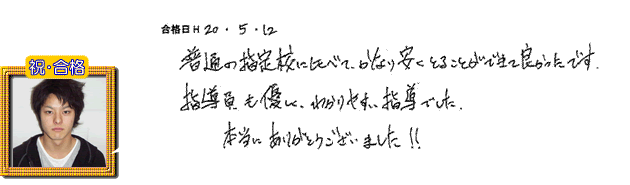 合格日 H 20・5・12
祝・合格
普通の指定校に比べて、かなり安くとることができて良かったです。
指導員も優しく、わかりやすい指導でした。
本当にありがとうございました!!